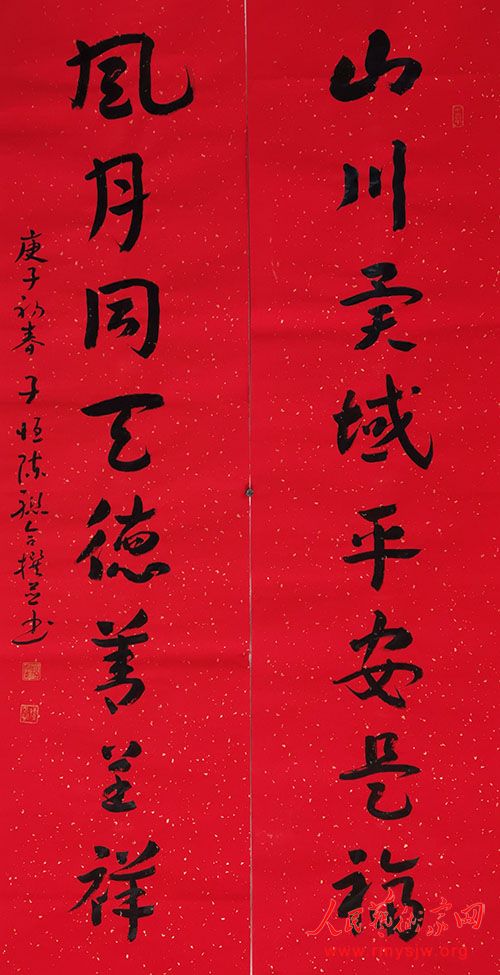 山川异域平安是福
風月同天德善呈祥
庚子初春 子恒陈联合撰并书
人民艺术家网
www.rmysjw.org